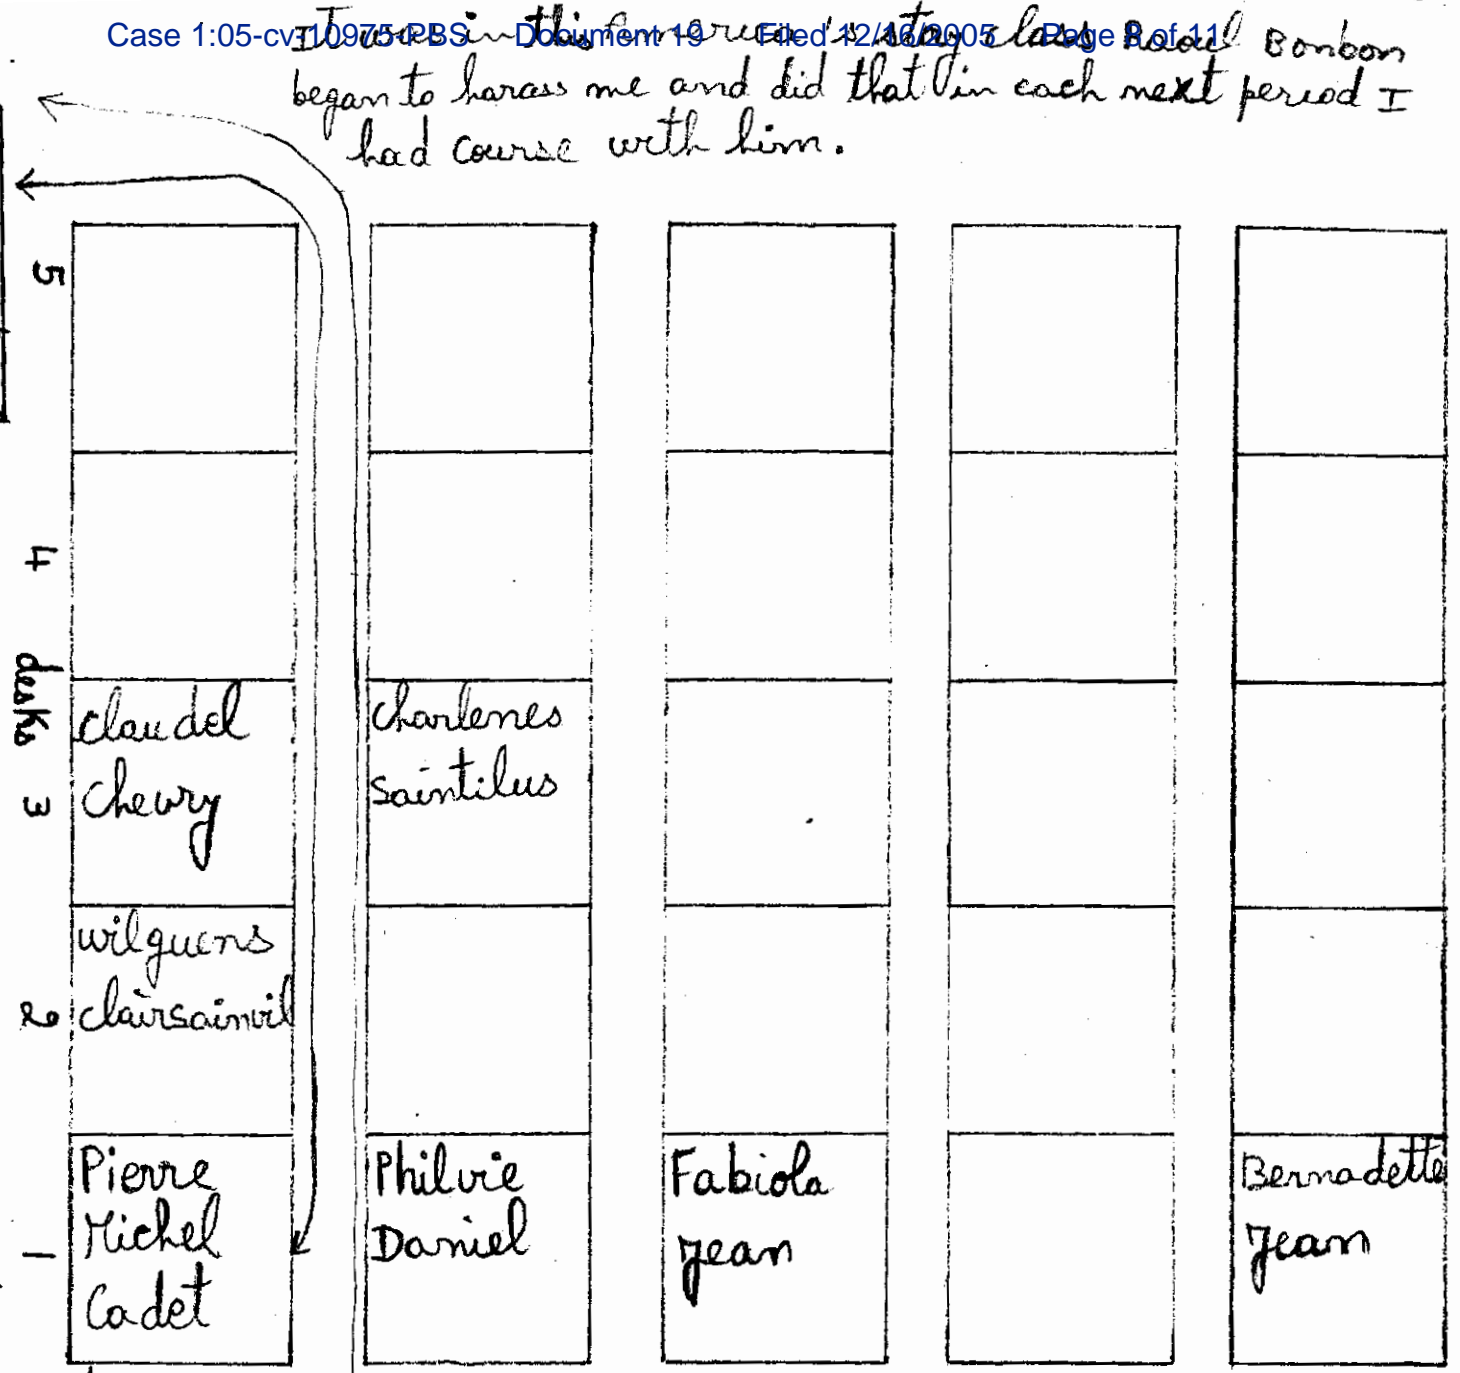 Case 1:05-cv-10975-PBS Document 19 Filed 12/16/2005 Page 8 of 11
It was in this America's story class Raoul Bonbon
began to harass me and did that in each next period I
had course with him.
5
4
desks
claudel
chewry
charlenes
saintilus
3
wilguens
clairsainvil
2
Pierre
Michel
Cadet
Philvie
Daniel
Fabiola
Jean
Bernadette
Jean
1